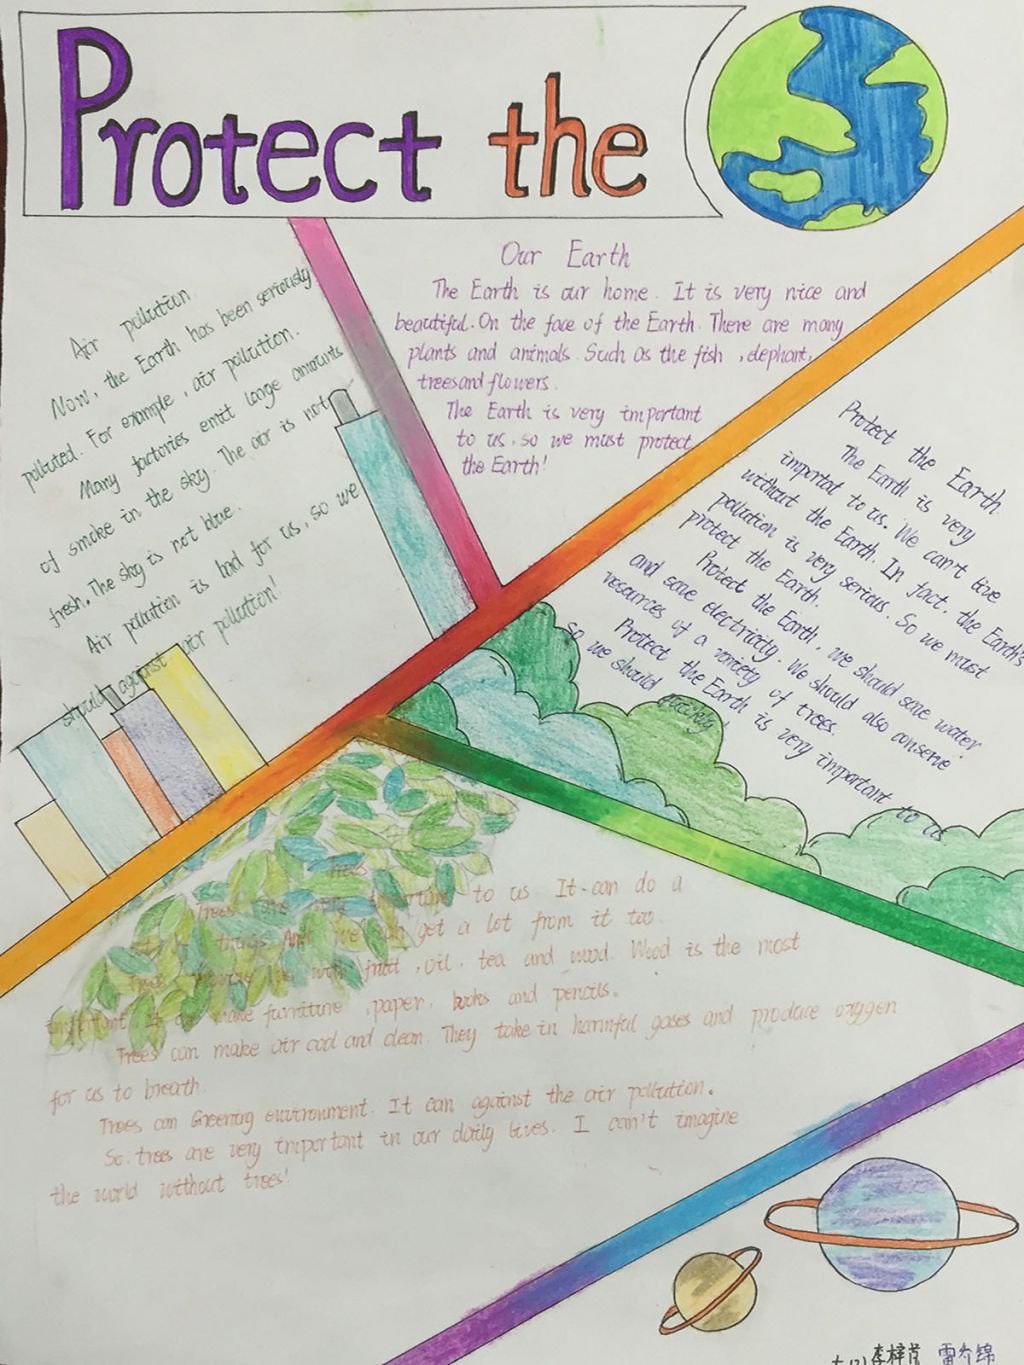 Protect the
Our Earth
The Earth is our home. It is very nice and
beautiful. On the face of the Earth. There are many
plants and animals. Such as the fish, elephant,
trees and flowers.
The Earth is very important
to us, so we must protect
the Earth!
Air pollution
Now, the Earth has been seriously
polluted. For example, air pollution.
Many factories emit large amounts
of smoke in the sky. The air is not
fresh. The sky is not blue.
Air pollution is bad for us, so we
should against air pollution!
Protect the Earth
The Earth is very
importat to us. We can't live
without the Earth. In fact, the Earth's
pollution is very serious. So we must
protect the Earth.
Protect the Earth, we should save water
and save electricity. We should also conserve
resources of a variety of trees.
Protect the Earth is very important to us
so we should
Trees
Trees are very important to us It can do a
things. And we can get a lot from it too
Trees us with fruit, oil, tea and wood. Wood is the most
important. It can make furniture, paper, books and pencils.
Trees can make air cool and clean. They take in harmful gases and produce oxygen
for us to breath.
Trees can Greening environment. It can against the air pollution.
So, trees are very important in our daily lives. I can't imagine
the world without trees!
李梓